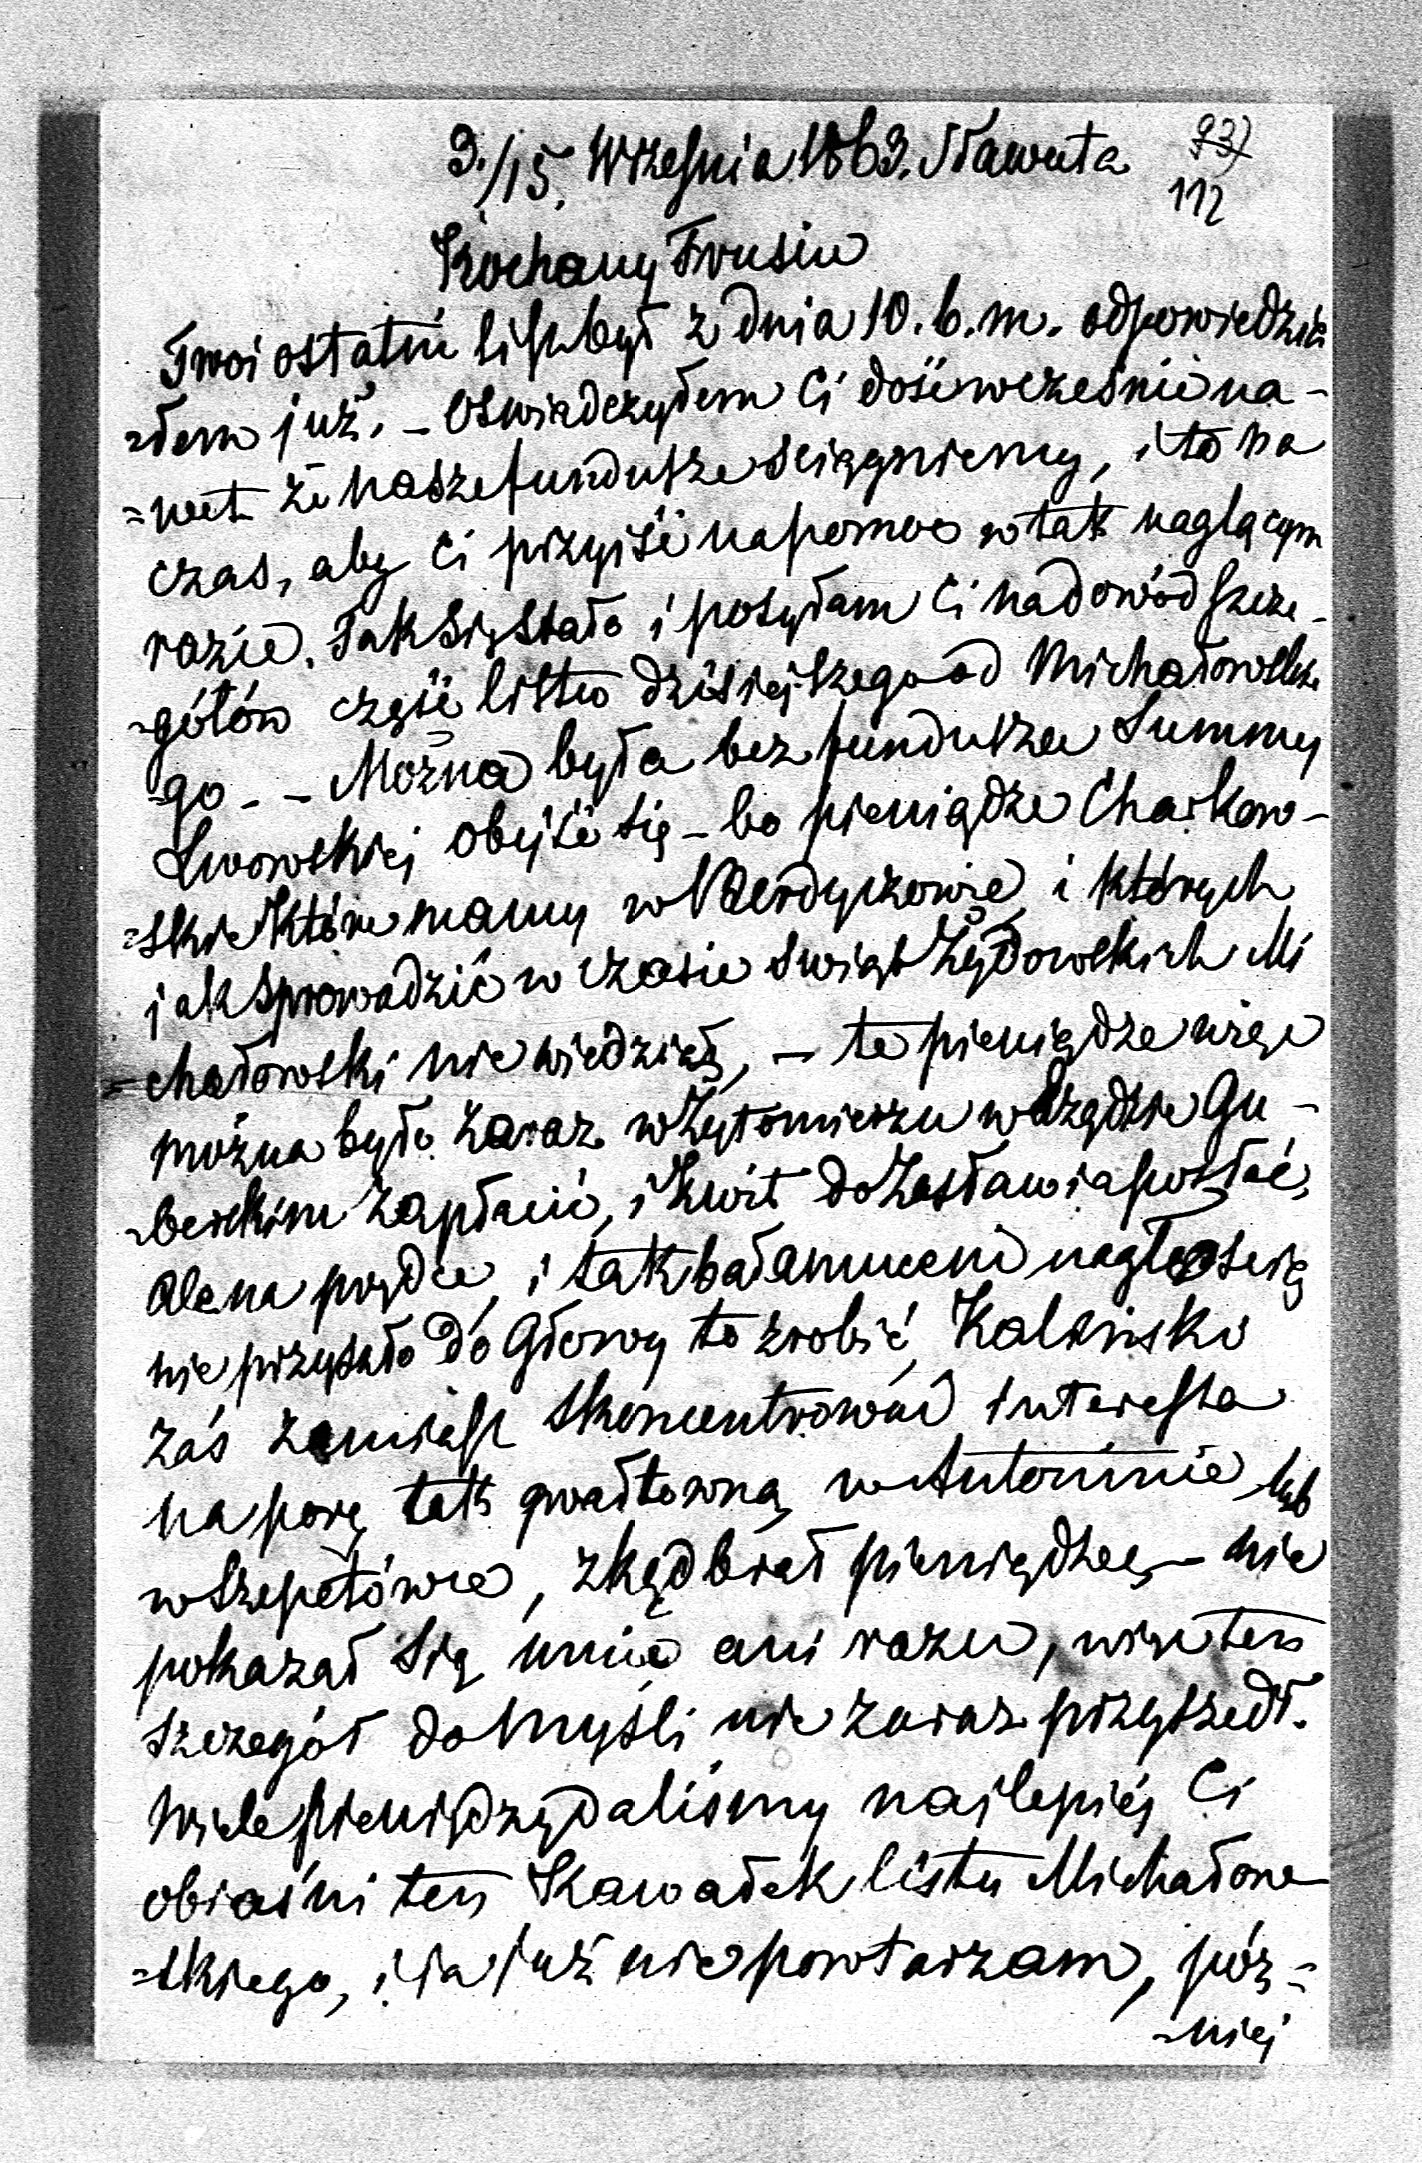 3./15. Września 1863. Sławuta
93)
112
Kochany Trusiu
Twoi ostatni list był z dnia 10. b. m. odpowiedzia
=łem już. – Oświadczyłem Ci dość wcześnie na-
=wet że nasze fundusze ściągniemy, i to na
czas, aby Ci przyiść na pomoc w tak naglącym
razie. Tak się stało i posyłam Ci na dowód szcze-
=gółów część listu dzisiejszego od Michałowskie
go. – Można była bez funduszu Summy
Lwowskiej obejść się – bo pieniądze Charkow-
=skie które mamy w Berdyczowie i których
jak sprowadzić w czasie swiąt Żydowskich Mi
=chałowski nie wiedział, – te pieniądze więc
można było zaraz w Żytomierzu w Rządzie Gu-
=berskim zapłacić, i kwit do Zasławia posłać,
ale na prędce, i tak bałamuceni nagłością
nie przyszło do Głowy to zrobić, Kaliński
zaś zamiast skoncentrować interessa
na porę tak gwałtowną w Antoninie lub
w Szepetówce, zkąd brał pieniądze, – nie
pokazał się u mie ani razu, więc ten
szczegół do myśli nie zaraz przyszedł.
Wiele pieniędzy daliśmy najlepiéj Ci
obiaśni ten Kawałek listu Michałow
=skiego, i ja już nie powtarzam, póź=
=niej